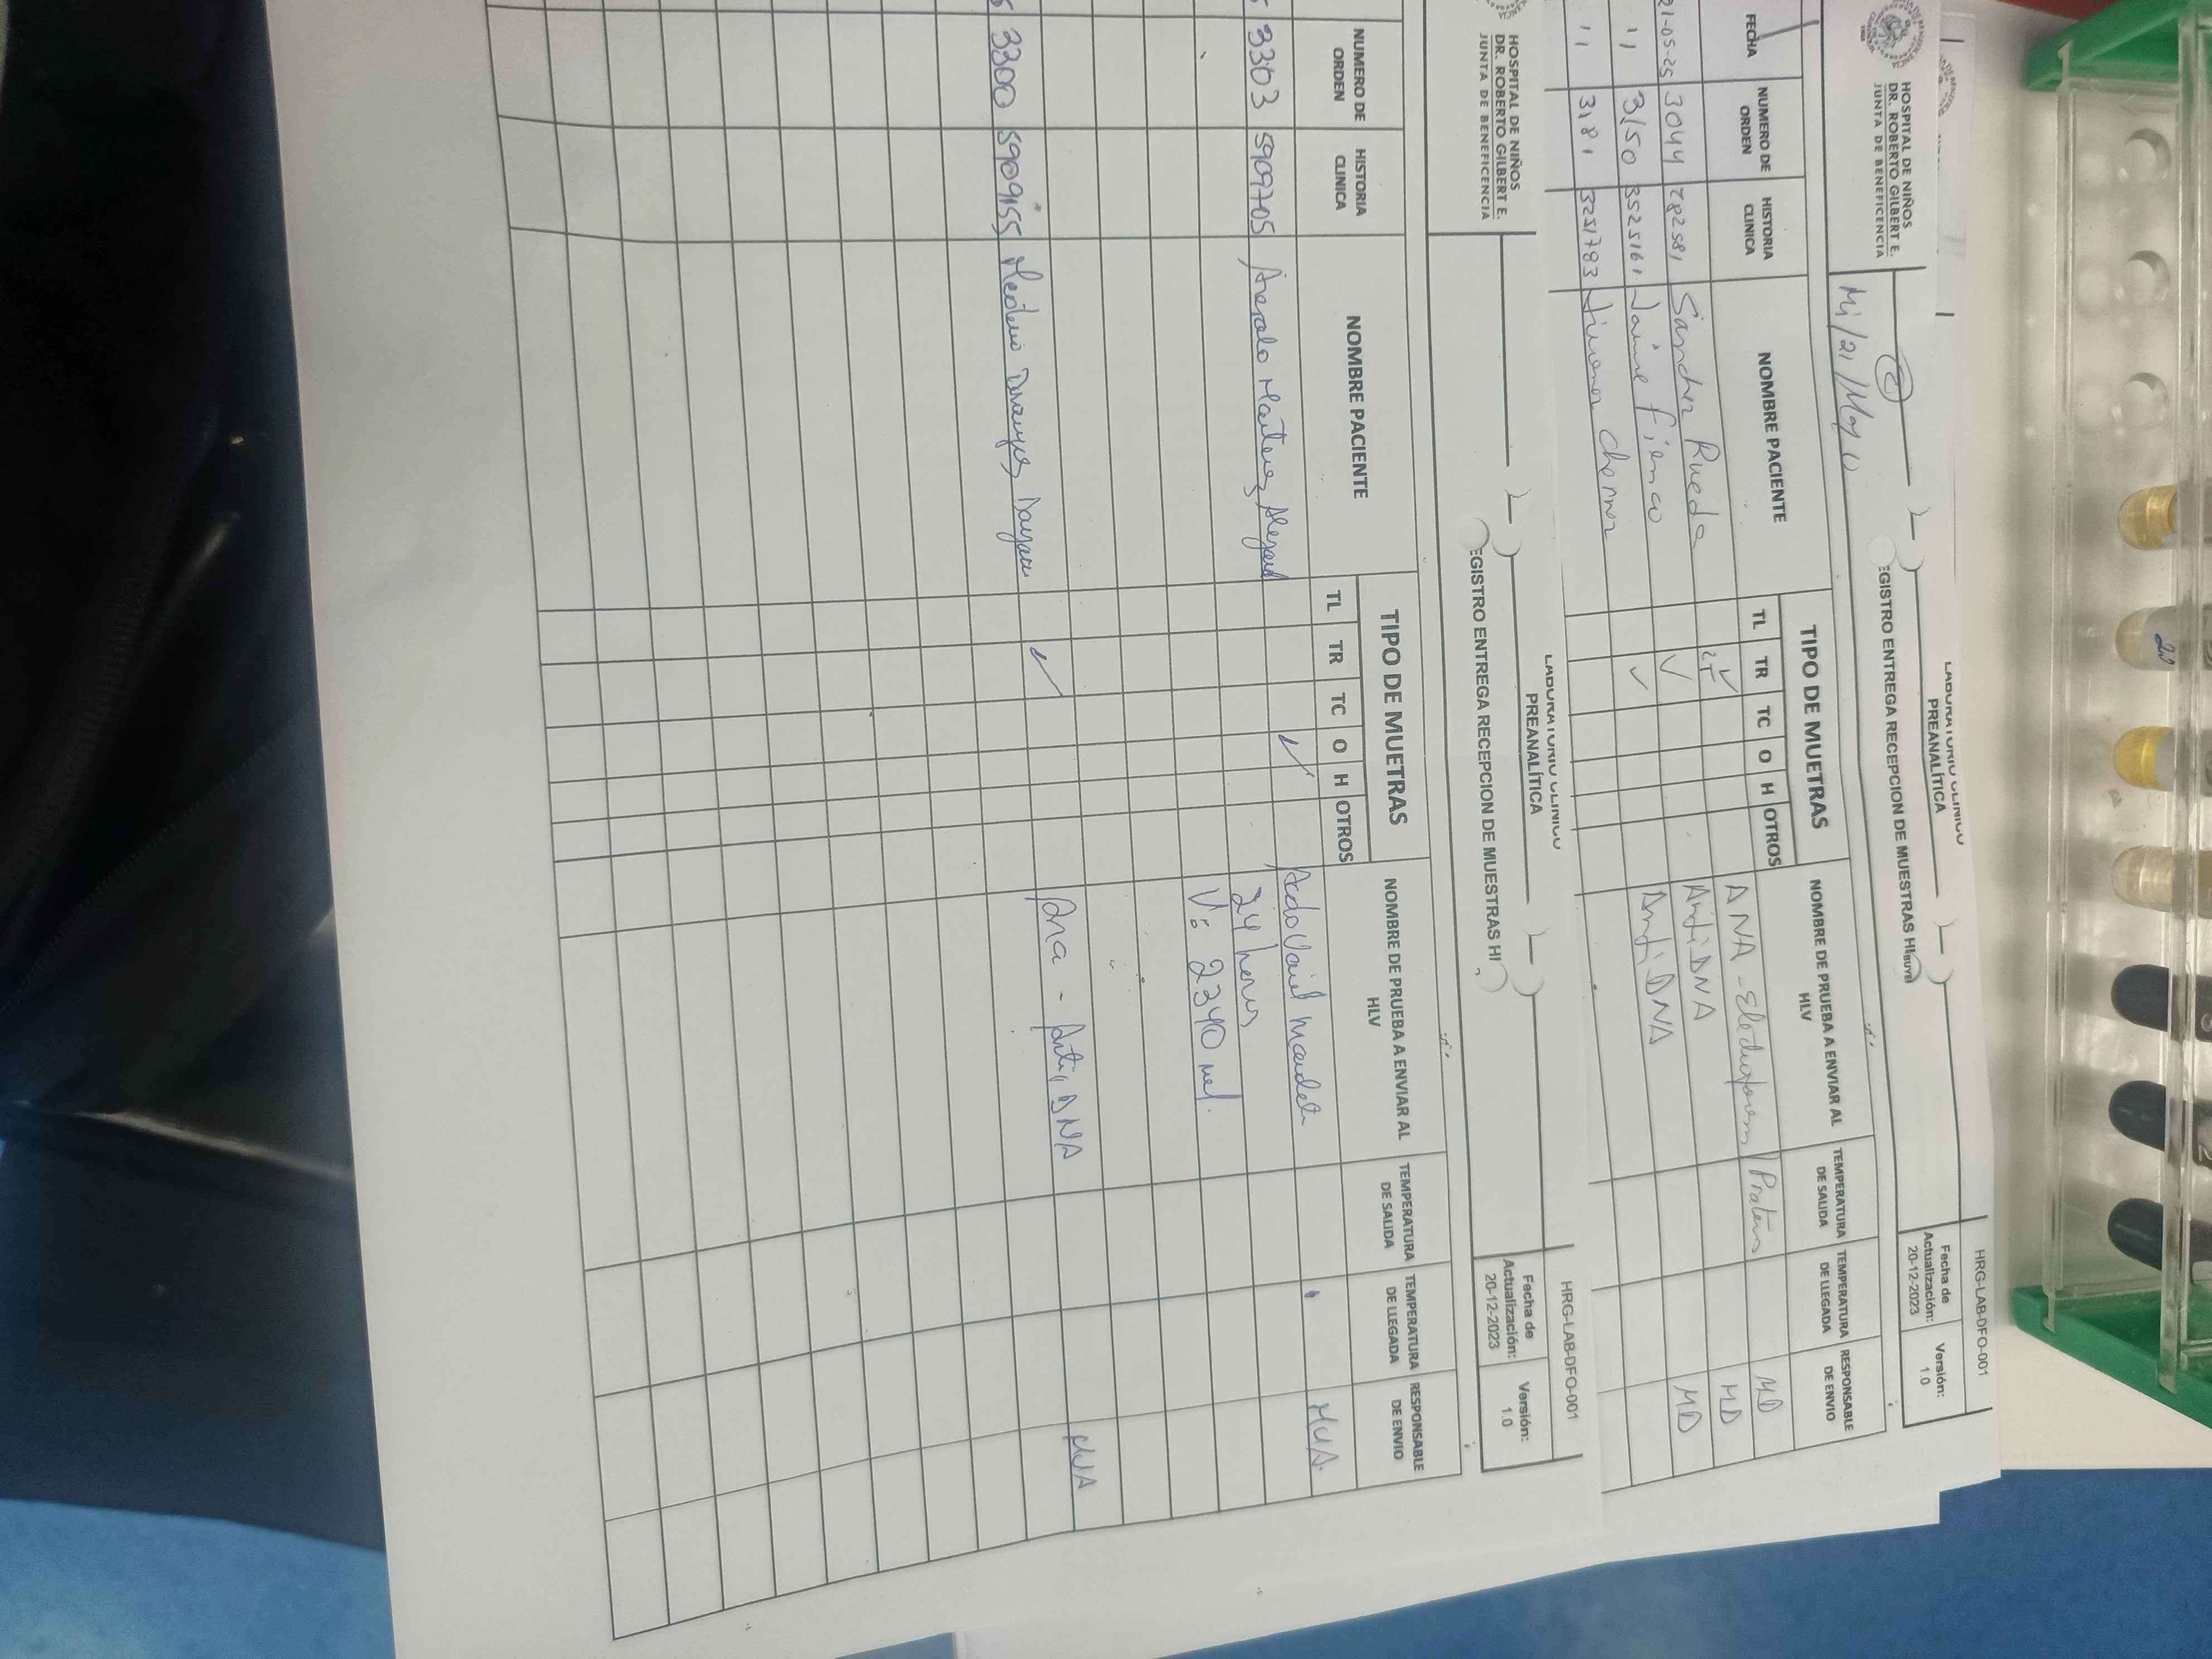 HOSPITAL DE NIÑOS
DR. ROBERTO GILBERT E.
JUNTA DE BENEFICENCIA
LABORATORIO CLINICO
PREANALÍTICA
EGISTRO ENTREGA RECEPCION DE MUESTRAS HI
HRG-LAB-DFO-001
Fecha de Actualización: 20-12-2023
Versión: 1.0
Mi/21/Mayo
FECHA NUMERO DE ORDEN HISTORIA CLINICA NOMBRE PACIENTE TIPO DE MUETRAS NOMBRE DE PRUEBA A ENVIAR AL HLV TEMPERATURA DE SALIDA TEMPERATURA DE LLEGADA RESPONSABLE DE ENVIO
TL TR TC O H OTROS
21-05-25 3044 Sanchez Rueda ✓ ANA - MD
11 3150 3525161 Jaime Fienco ✓ Anti DNA MD
11 3181 3251783 Jimenez ✓ Anti DNA MD
HOSPITAL DE NIÑOS
DR. ROBERTO GILBERT E.
JUNTA DE BENEFICENCIA
LABORATORIO CLINICO
PREANALÍTICA
EGISTRO ENTREGA RECEPCION DE MUESTRAS HI
HRG-LAB-DFO-001
Fecha de Actualización: 20-12-2023
Versión: 1.0
NUMERO DE ORDEN HISTORIA CLINICA NOMBRE PACIENTE TIPO DE MUETRAS NOMBRE DE PRUEBA A ENVIAR AL HLV TEMPERATURA DE SALIDA TEMPERATURA DE LLEGADA RESPONSABLE DE ENVIO
TL TR TC O H OTROS
3303 5909705 ✓
24 horas
V: 2340 ml.
3300 5909155 ✓ Ana - Anti DNA